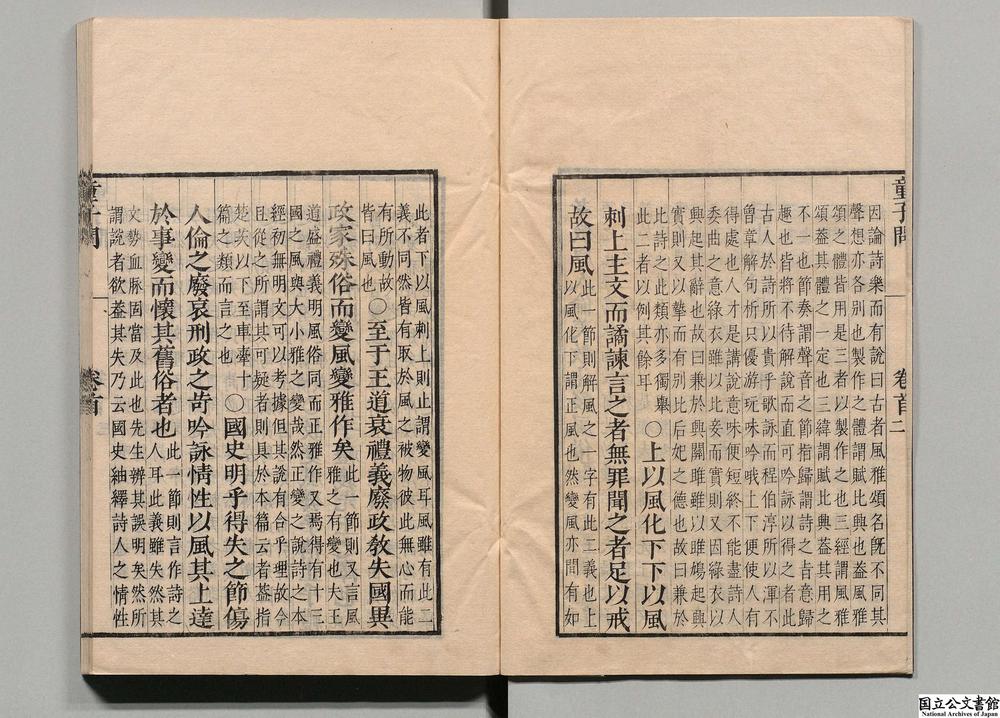 童子問
卷首
二
因論詩樂而有說曰古者風雅頌名旣不同其
聲想亦各別也製作之體謂賦比興也葢風雅
頌之體皆用是三者以製作之也三經謂風雅
頌葢其體之一定也三緯謂賦比興葢其用之
不一也節奏謂聲音之節指歸謂詩之㫖意歸
趣也皆將不待解說而直可吟詠以得之者此
古人於詩所以貴乎歌詠而程伯淳所以渾不
曾章解句析只優游玩味吟哦上下便使人有
得處也人才是講說意味便短終不能盡詩人
委曲之意綠衣雖以比妾而實則又因綠衣以
興起其辭也故曰兼於興關雎雖以雎鳩起興
實則又以摯而有別比后妃之德也故曰兼於
比詩之此類亦多獨舉
此二者以例其餘耳
○上以風化下下以風
刺上主文而譎諫言之者無罪聞之者足以戒
故曰風
此一節則解風之一字有此二義也上
以風化下謂正風也然變風亦間有如
此者下以風刺上則止謂變風耳風雖有此二
義不同然皆有取於風之被物彼此無心而能
有所動故
皆曰風也
○至于王道衰禮義廢政教失國異
政家殊俗而變風變雅作矣
此一節則又言風
雅之有變也夫王
道盛禮義明風俗同而正雅作又焉得有十三
國之風與大小雅之變哉然正變之說詩之本
經初無明文可以考據但其說有合乎理故今
且從之所謂其可疑者則具於本篇云者葢指
楚茨以下至車舝十
篇之類而言之也
○國史明乎得失之節傷
人倫之廢哀刑政之苛吟詠情性以風其上達
於事變而懷其舊俗者也
此一節則言作詩之
人耳此義雖失然其
文勢血脉固當及此也先生辨其誤明矣然所
謂說者欲葢其失乃云國史紬繹詩人之情性
童子問
卷首
国立公文書館
National Archives of Japan